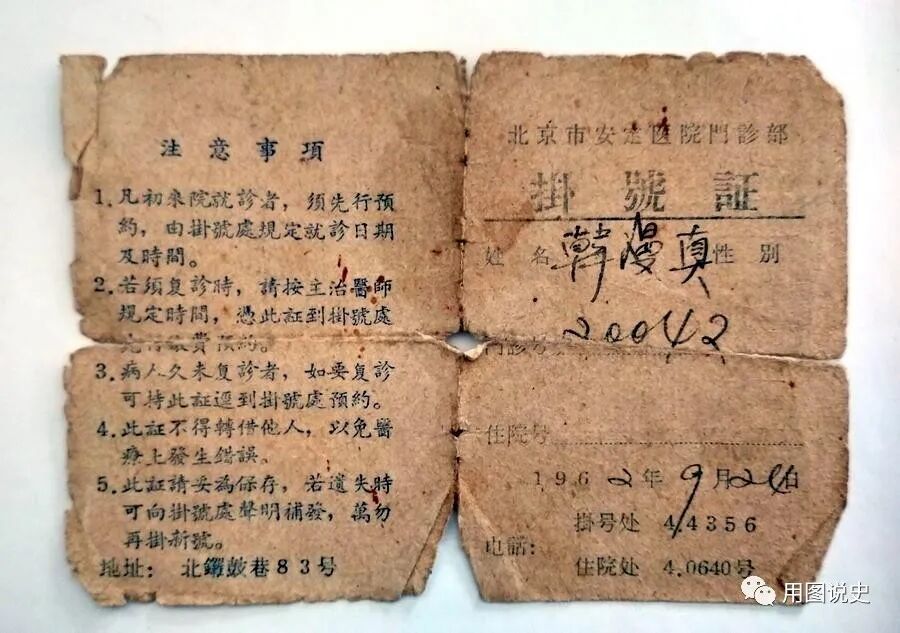 注意事項
1. 凡初來院就診者，須先行預
約，由掛號處規定就診日期
及時間。
2. 若須复診時，請按主治醫師
規定時間，憑此証到掛號處
預約。
3. 病人久未复診者，如要复診
可持此証逕到掛號處預約。
4. 此証不得轉借他人，以免醫
療上發生錯誤。
5. 此証請妥為保存，若遺失時
可向掛號處聲明補發，萬勿
再掛新號。
地址：北鑼鼓巷83号
北京市安定医院門診部
掛號証
姓名 韓漫真 性別
門診号 20042
住院号
1962年9月24日
掛号处 4,4356
电話：
住院处 4.0640号
用图说史